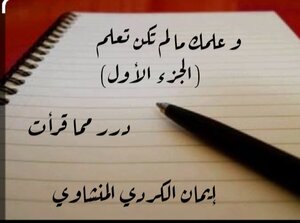 و علمك مالم تكن تعلم
(الجزء الأول)
درر مما قرأت
إيمان الكردي المنشاوي